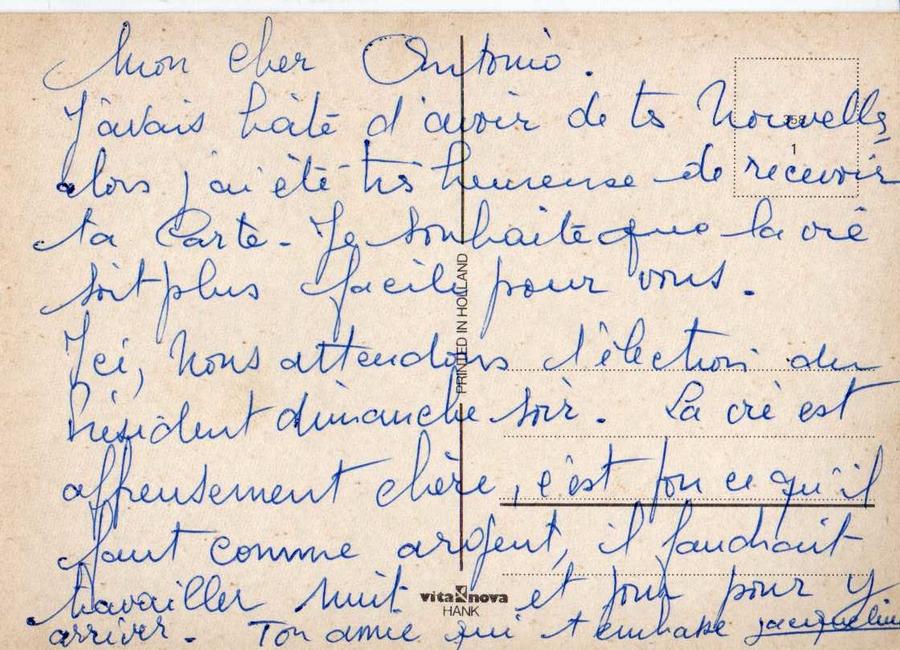 Mon cher Antonio.
J'avais hâte d'avoir de tes Nouvelles,
alors j'ai été très heureuse de recevoir
ta Carte - Je souhaite que la vie
soit plus facile pour vous.
Ici, Nous attendons l'élection du
Président dimanche soir. La vie est
affreusement chère, c'est fou ce qu'il
faut comme argent, il faudrait
travailler nuit et jour pour y
arriver. Ton amie qui t'embrasse Jacqueline
1
PRINTED IN HOLLAND
vita nova
HANK